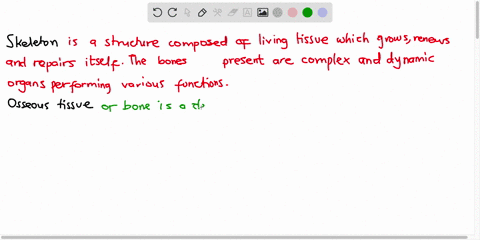 Skeleton is a structure composed of living tissue which grows, renews
and repairs itself. The bones present are complex and dynamic
organs performing various functions.
Osseous tissue or bone is a